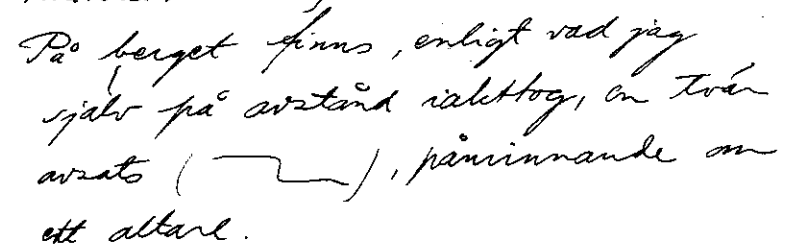 På berget finns, enligt vad jag
själv på avstånd iakttog, en tvär
avsats ( ), påminnande om
ett altare.